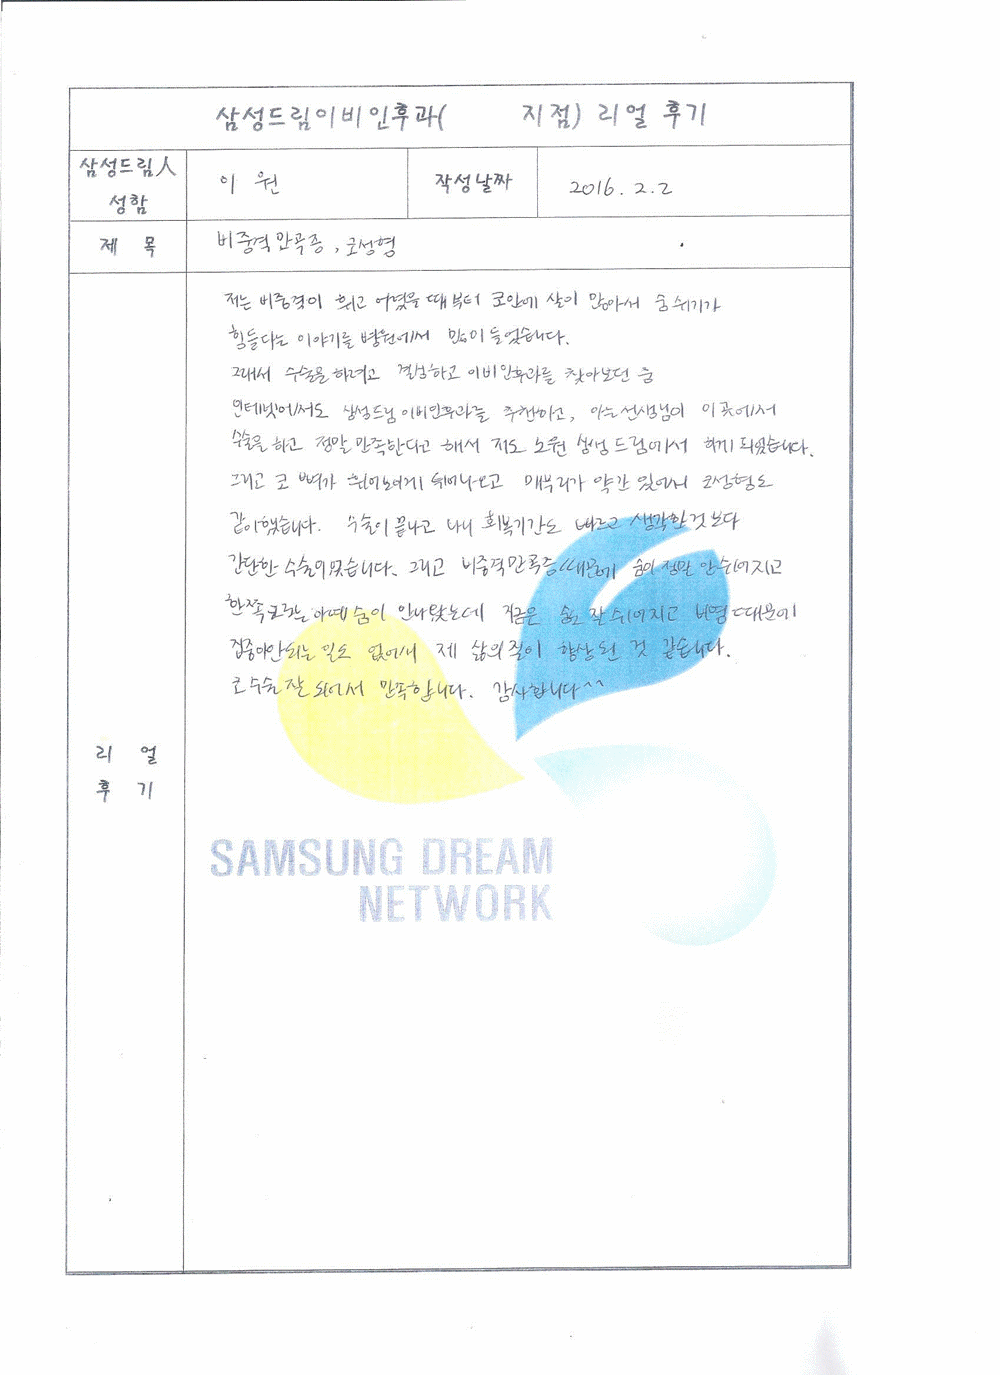 삼성드림이비인후과(      지점) 리얼 후기
삼성드림人 성함
이 원
작성날짜
2016. 2. 2
제 목
비중격만곡증, 코성형
저는 비중격이 휘고 어렸을 때부터 코안에 살이 많아서 숨쉬기가
힘들다는 이야기를 병원에서 많이 들었습니다.
그래서 수술을 하려고 결심하고 이비인후과를 찾아보던 중
인터넷에서도 삼성드림이비인후과를 추천하고, 아는선생님이 이곳에서
수술을 하고 정말 만족한다고 해서 저도 노원 삼성드림에서 하게 되었습니다.
그리고 코 뼈가 튀어나오고 매부리가 약간 있어서 코성형도
같이했습니다. 수술이 끝나고 나니 회복기간도 빠르고 생각한것보다
간단한 수술이었습니다. 그리고 비중격만곡증때문에 숨이 정말 안쉬어지고
한쪽코로는 아예 숨이 안나왔는데 지금은 숨도 잘쉬어지고 비염때문에
집중이안되는 일도 없어서 제 삶의 질이 향상된 것 같습니다.
코수술 잘 되어서 만족합니다. 감사합니다^^
리 얼
후 기
SAMSUNG DREAM
NETWORK